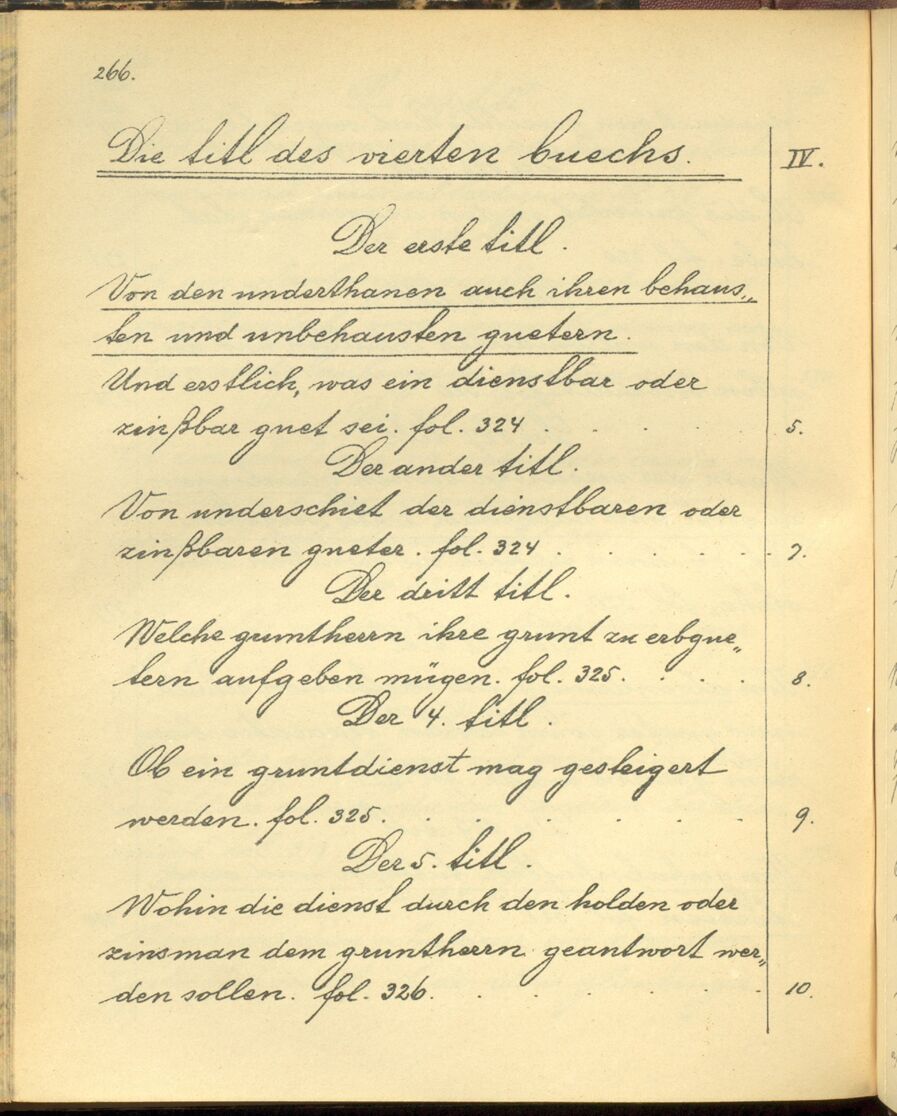 266.
Die titl des vierten buechs. IV.
Der erste titl.
Von den underthanen auch ihren behaus„
ten und unbehausten guetern.
Und erstlich, was ein dienstbar oder
zinßbar guet sei. fol. 324 . . . . . 5.
Der ander titl.
Von underschiet der dienstbaren oder
zinßbaren gueter. fol. 324 . . . . . . 7.
Der dritt titl.
Welche gruntherrn ihre grunt zu erbgue„
tern aufgeben mügen. fol. 325. . . . . 8.
Der 4. titl.
Ob ein gruntdienst mag gesteigert
werden. fol. 325. . . . . . . 9.
Der 5. titl.
Wohin die dienst durch den holden oder
zinsman dem gruntherrn geantwort wer„
den sollen. fol. 326. . . . . . . 10.